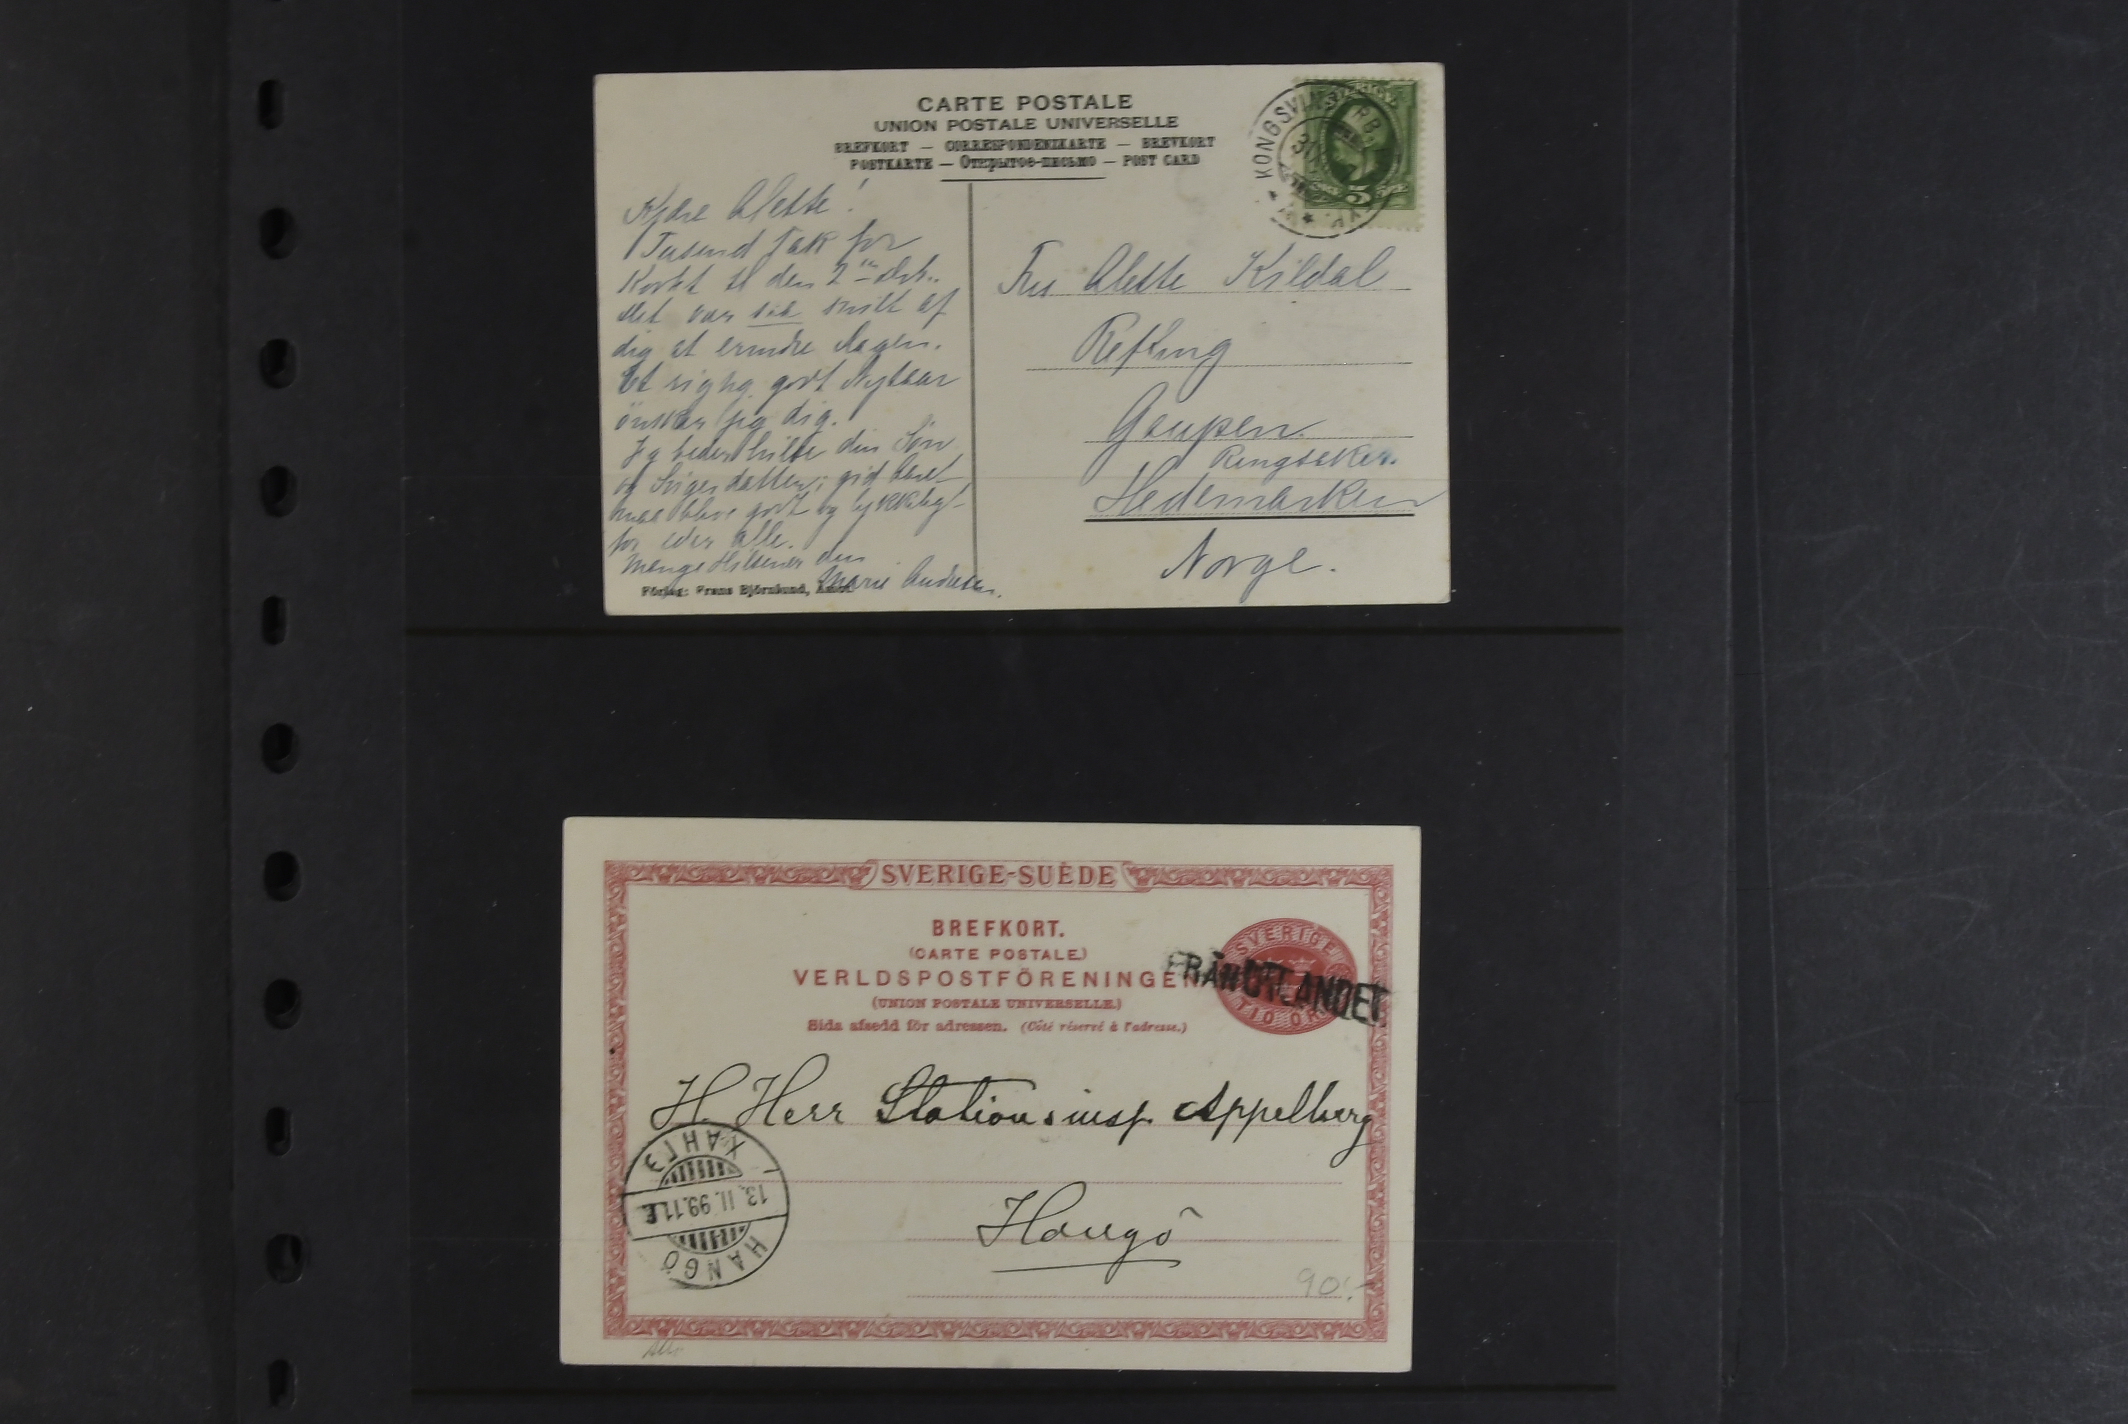 CARTE POSTALE
UNION POSTALE UNIVERSELLE
BREFKORT — CORRESPONDENZKARTE — BREVKORT
POSTKARTE — Открытое письмо — POST CARD
KONGSVING
SVERIGE
5
Kjære Alette!
Tusend Tak for
Kortet til den 2
det var saa snilt af
dig at erindre Dagen.
Et rigtig godt Nytaar
önsker jeg dig.
Jeg beder hilse din Sön
og Svigerdatter; gid Aaret
maa blive godt og lykkeligt
for eder alle.
Mange Hilsener din
Marie Andresen.
Förlag: Frans Björnlund, Åmål
Fru Alette Kildal
Gaupen
Ringsaker.
Hedemarken
Norge.
SVERIGE-SUÈDE
BREFKORT.
(CARTE POSTALE)
VERLDSPOSTFÖRENINGEN
(UNION POSTALE UNIVERSELLE.)
Sida afsedd för adressen. (Côté réservé à l'adresse.)
SVERIGE
TIO ÖRE
FRÅN UTLANDET.
H. Herr Stationsinsp. Appelberg
Hangö
ХАНГЭ
13. II. 99. 11 E
HANGÖ
90:-